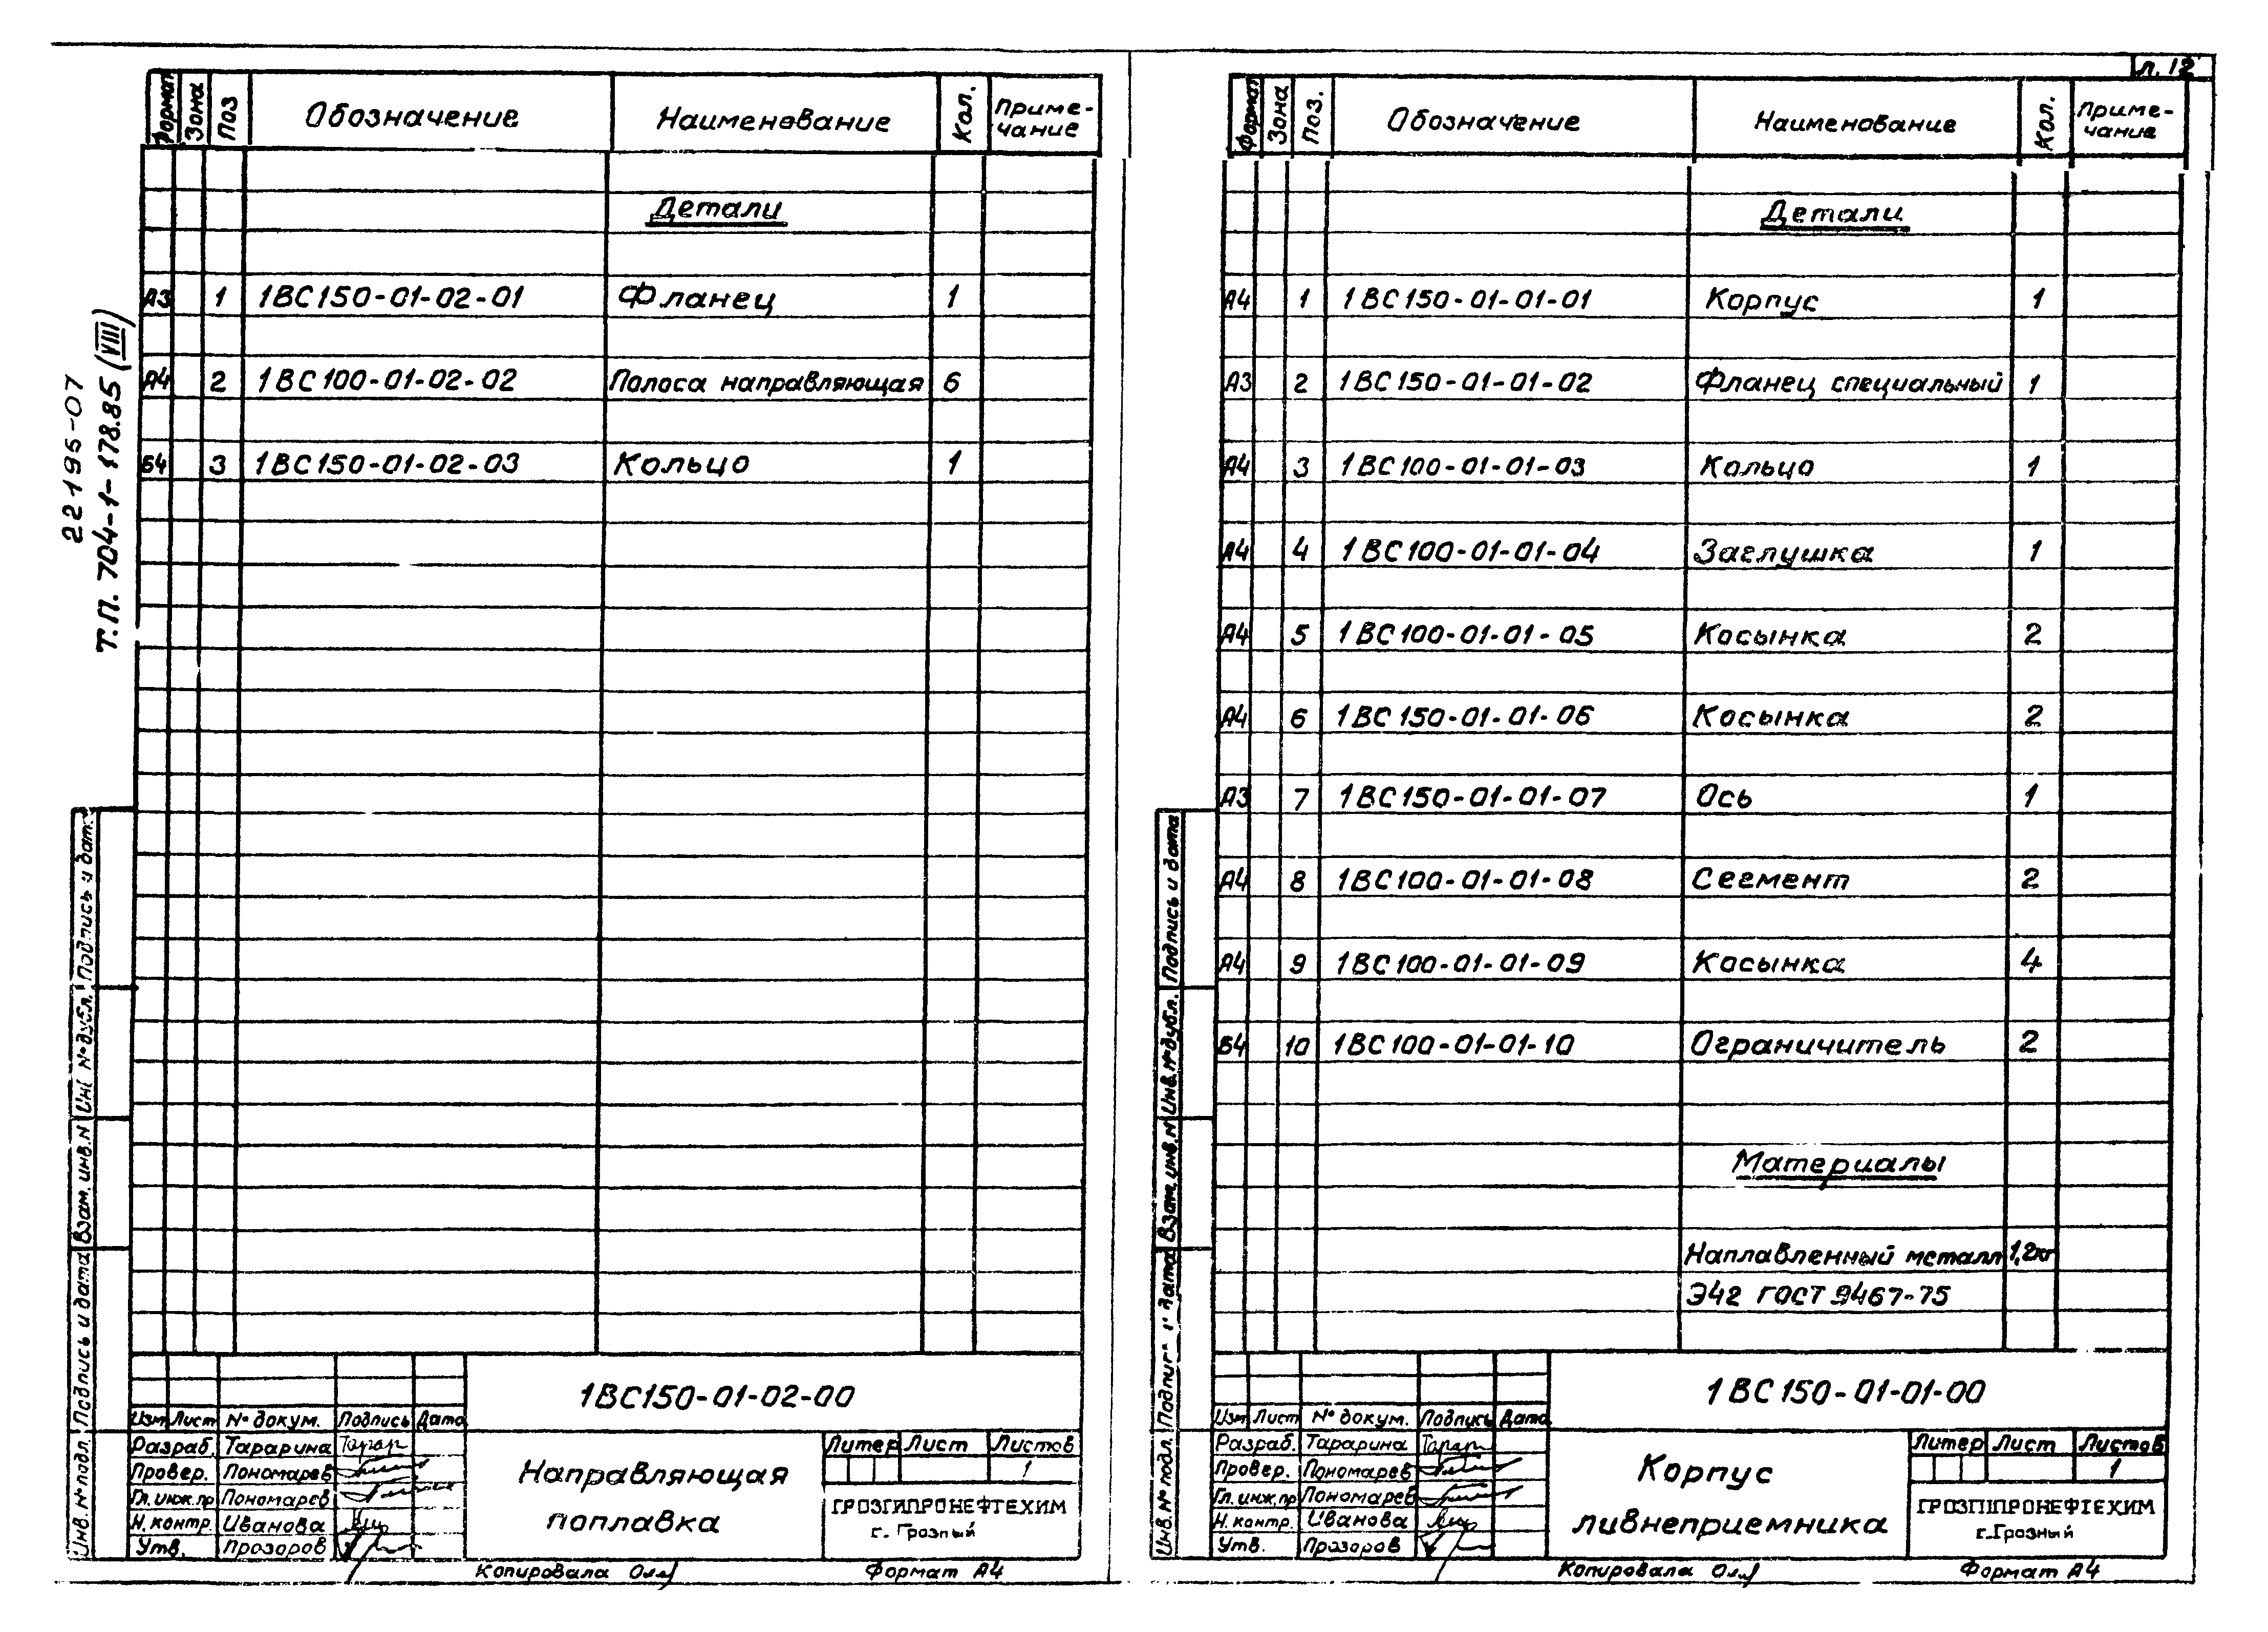 л. 12
22195-07
т.п. 704-1-178.85 (VIII)
Формат Зона Поз Обозначение Наименование Кол. Приме-
чание
Детали
А3 1 1ВС150-01-02-01 Фланец 1
А4 2 1ВС100-01-02-02 Полоса направляющая 6
Б4 3 1ВС150-01-02-03 Кольцо 1
Инв. № подл. Подпись и дата Взам. инв. № Инв. № дубл. Подпись и дата
1ВС150-01-02-00
Изм Лист № докум. Подпись Дата
Разраб. Тарарина Тарар
Провер. Пономарев
Гл. инж. пр Пономарев
Н. контр Иванова
Утв. Прозоров
Направляющая
поплавка
Литер Лист Листов
1
ГРОЗГИПРОНЕФТЕХИМ
г. Грозный
Копировала Формат А4
Формат Зона Поз. Обозначение Наименование Кол. Приме-
чание
Детали
А4 1 1ВС150-01-01-01 Корпус 1
А3 2 1ВС150-01-01-02 Фланец специальный 1
А4 3 1ВС100-01-01-03 Кольцо 1
А4 4 1ВС100-01-01-04 Заглушка 1
А4 5 1ВС100-01-01-05 Косынка 2
А4 6 1ВС150-01-01-06 Косынка 2
А3 7 1ВС150-01-01-07 Ось 1
А4 8 1ВС100-01-01-08 Сегмент 2
А4 9 1ВС100-01-01-09 Косынка 4
Б4 10 1ВС100-01-01-10 Ограничитель 2
Материалы
Наплавленный металл 1,2кг
Э42 ГОСТ 9467-75
Инв. № подл. Подпись и дата Взам. инв. № Инв. № дубл. Подпись и дата
1ВС150-01-01-00
Изм Лист № докум. Подпись Дата
Разраб. Тарарина Тарар
Провер. Пономарев
Гл. инж. пр Пономарев
Н. контр. Иванова
Утв. Прозоров
Корпус
ливнеприемника
Литер Лист Листов
1
ГРОЗГИПРОНЕФТЕХИМ
г. Грозный
Копировала Формат А4